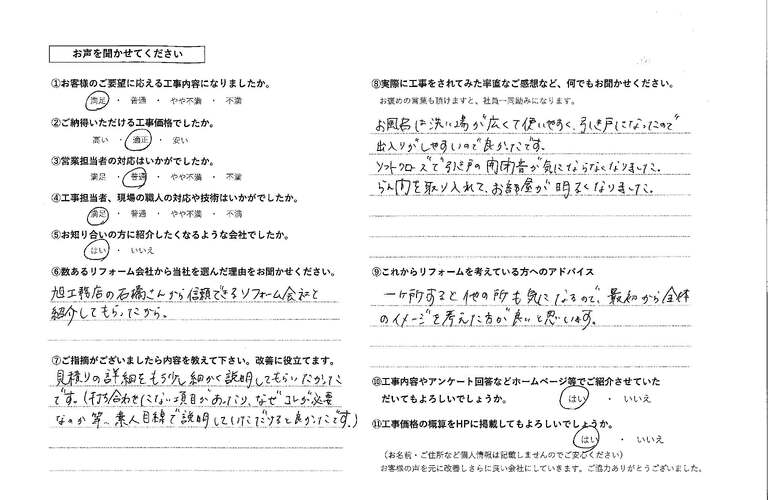 お声を聞かせてください
①お客様のご要望に応える工事内容になりましたか。
満足 ・ 普通 ・ やや不満 ・ 不満
②ご納得いただける工事価格でしたか。
高い ・ 適正 ・ 安い
③営業担当者の対応はいかがでしたか。
満足 ・ 普通 ・ やや不満 ・ 不満
④工事担当者、現場の職人の対応や技術はいかがでしたか。
満足 ・ 普通 ・ やや不満 ・ 不満
⑤お知り合いの方に紹介したくなるような会社でしたか。
はい ・ いいえ
⑥数あるリフォーム会社から当社を選んだ理由をお聞かせください。
旭工務店の石橋さんから信頼できるリフォーム会社と
紹介してもらったから。
⑦ご指摘がございましたら内容を教えて下さい。改善に役立てます。
見積りの詳細をもう少し細かく説明してもらいたかった
です。(打ち合わせにない項目があったり、なぜコレが必要
なのか等、素人目線で説明していただけると良かったです。)
⑧実際に工事をされてみた率直なご感想など、何でもお聞かせください。
お褒めの言葉も頂けますと、社員一同励みになります。
お風呂は洗い場が広くて使いやすく、引き戸になったので
出入りがしやすいので良かったです。
ソフトクローズで引き戸の開閉音が気にならなくなりました。
らん間を取り入れて、お部屋が明るくなりました。
⑨これからリフォームを考えている方へのアドバイス
一ヶ所すると他の所も気になるので、最初から全体
のイメージを考えた方が良いと思います。
⑩工事内容やアンケート回答などホームページ等でご紹介させていた
だいてもよろしいでしょうか。 はい ・ いいえ
⑪工事価格の概算をHPに掲載してもよろしいでしょうか。
はい ・ いいえ
（お名前・ご住所など個人情報は記載しませんのでご安心ください）
お客様の声を元に改善しさらに良い会社にしていきます。ご協力ありがとうございました。